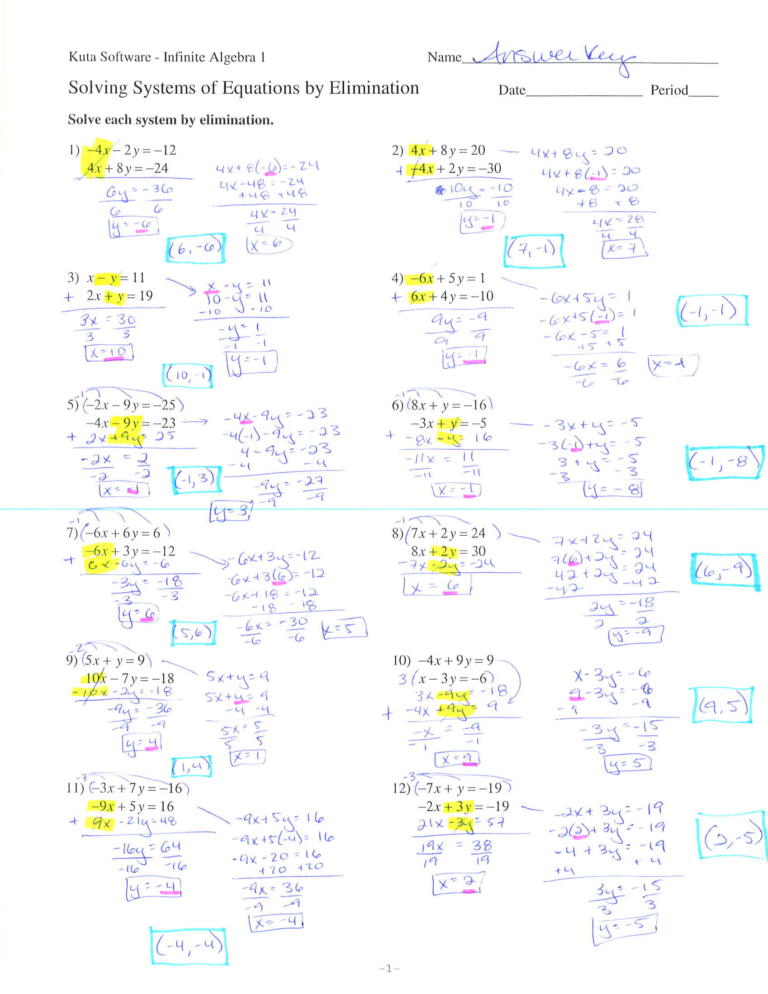 Kuta Software - Infinite Algebra 1
Name Answer Key
Solving Systems of Equations by Elimination
Date Period
Solve each system by elimination.
1) −4x − 2y = −12
4x + 8y = −24
6y = -36
6 6
y = -6
4x + 8(-6) = -24
4x - 48 = -24
+48 +48
4x = 24
4 4
x = 6
(6, -6)
2) 4x + 8y = 20
+ −4x + 2y = −30
10y = -10
10 10
y = -1
4x + 8y = 20
4x + 8(-1) = 20
4x - 8 = 20
+8 +8
4x = 28
4 4
x = 7
(7, -1)
3) x − y = 11
+ 2x + y = 19
3x = 30
3 3
x = 10
x - y = 11
10 - y = 11
-10 -10
-y = 1
-1 -1
y = -1
(10, -1)
4) −6x + 5y = 1
+ 6x + 4y = −10
9y = -9
9 9
y = -1
-6x + 5y = 1
-6x + 5(-1) = 1
-6x - 5 = 1
+5 +5
-6x = 6
-6 -6
(-1, -1)
-1
5) (−2x − 9y = −25)
−4x − 9y = −23
+ 2x + 9y = 25
-2x = 2
-2 -2
x = -1
-4x - 9y = -23
-4(-1) - 9y = -23
4 - 9y = -23
-4 -4
-9y = -27
-9 -9
y = 3
(-1, 3)
-1
6) (8x + y = −16)
−3x + y = −5
+ -8x - y = 16
-11x = 11
-11 -11
x = -1
-3x + y = -5
-3(-1) + y = -5
3 + y = -5
-3 -3
y = -8
(-1, -8)
-1
7) (−6x + 6y = 6)
−6x + 3y = −12
+ 6x - 6y = -6
-3y = -18
-3 -3
y = 6
-6x + 3y = -12
-6x + 3(6) = -12
-6x + 18 = -12
-18 -18
-6x = -30
-6 -6
x = 5
(5, 6)
-1
8) (7x + 2y = 24)
8x + 2y = 30
-7x - 2y = -24
x = 6
7x + 2y = 24
7(6) + 2y = 24
42 + 2y = 24
-42 -42
2y = -18
2 2
y = -9
(6, -9)
-2
9) (5x + y = 9)
10x − 7y = −18
-10x - 2y = -18
-9y = -36
-9 -9
y = 4
5x + y = 9
5x + 4 = 9
-4 -4
5x = 5
5 5
x = 1
(1, 4)
10) −4x + 9y = 9
3 (x − 3y = −6)
3x - 9y = -18
+ -4x + 9y = 9
-x = -9
-1 -1
x = 9
x - 3y = -6
9 - 3y = -6
-9 -9
-3y = -15
-3 -3
y = 5
(9, 5)
-3
11) (−3x + 7y = −16)
−9x + 5y = 16
+ 9x - 21y = 48
-16y = 64
-16 -16
y = -4
-9x + 5y = 16
-9x + 5(-4) = 16
-9x - 20 = 16
+20 +20
-9x = 36
-9 -9
x = -4
(-4, -4)
-3
12) (−7x + y = −19)
−2x + 3y = −19
21x - 3y = 57
19x = 38
19 19
x = 2
-2x + 3y = -19
-2(2) + 3y = -19
-4 + 3y = -19
+4 +4
3y = -15
3 3
y = -5
(2, -5)
-1-